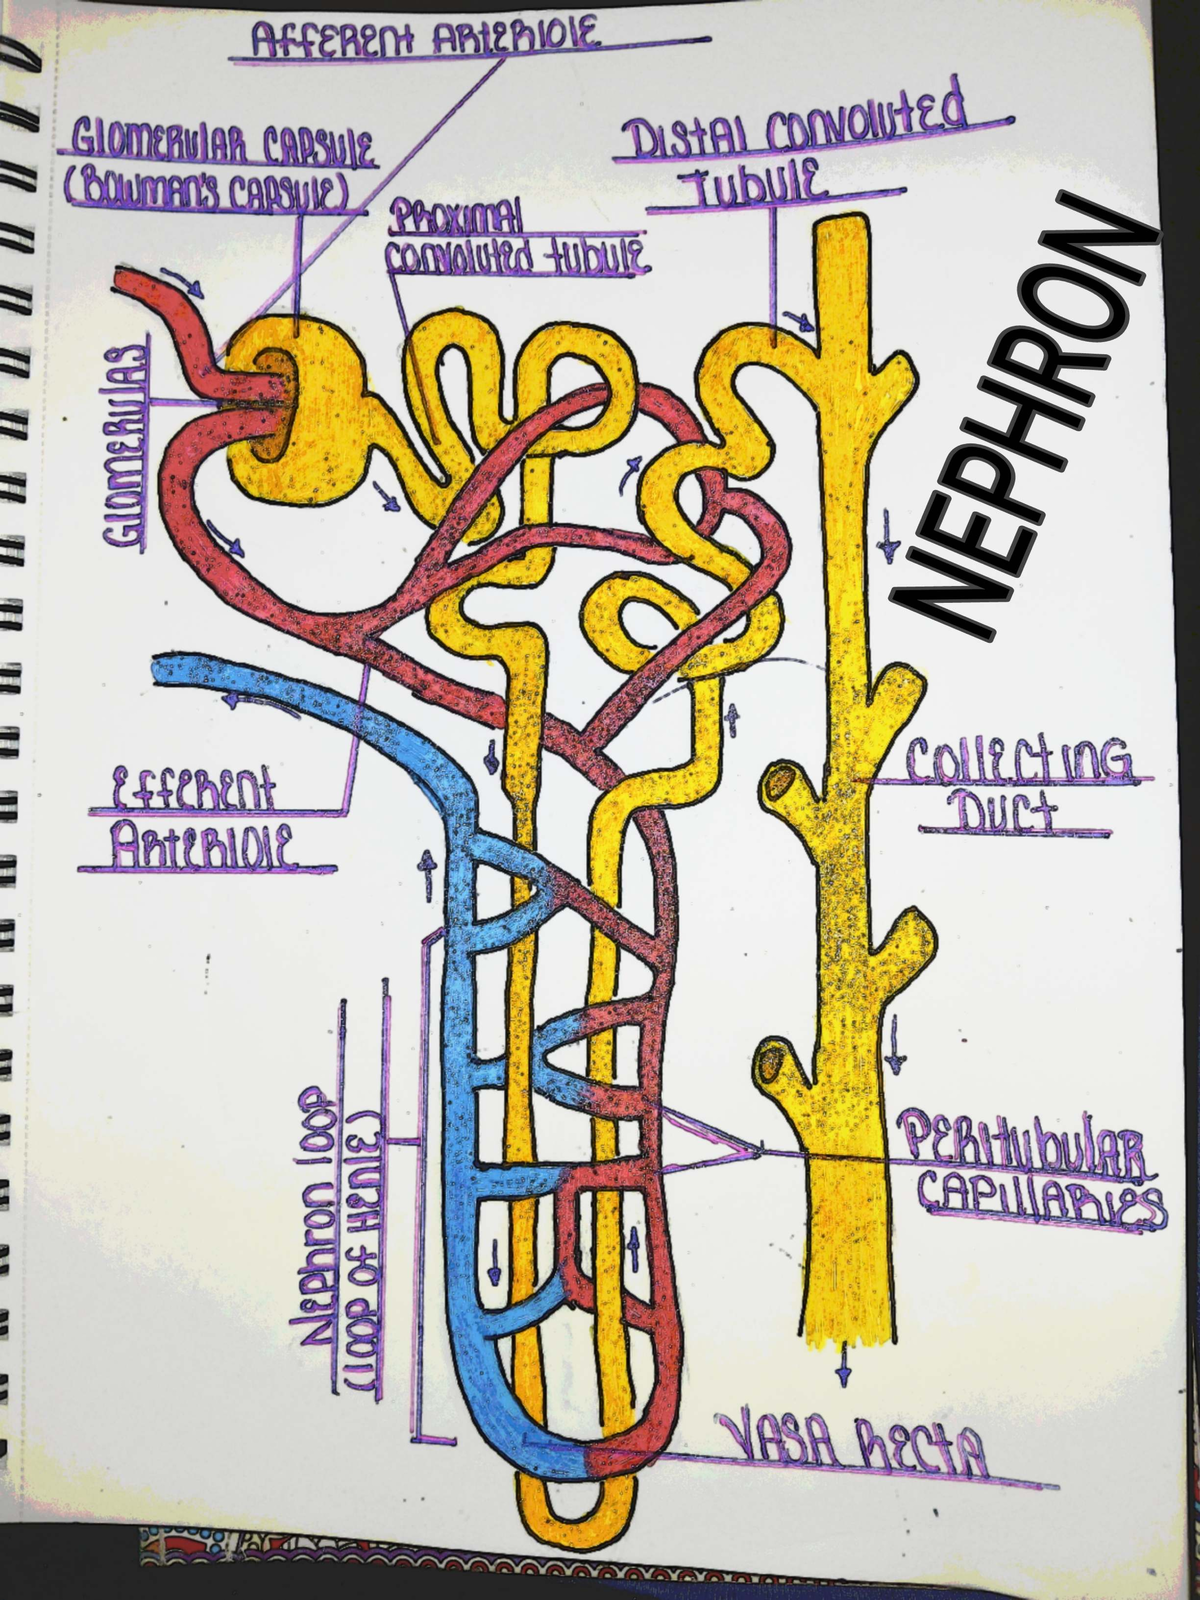 AFFERENT ARTERIOLE
GLOMERULAR CAPSULE
(BOWMAN'S CAPSULE)
PROXIMAL
CONVOLUTED TUBULE
DISTAL CONVOLUTED
TUBULE
NEPHRON
GLOMERULAS
EFFERENT
ARTERIOLE
COLLECTING
DUCT
NEPHRON LOOP
(LOOP OF HENLE)
PERITUBULAR
CAPILLARIES
VASA RECTA